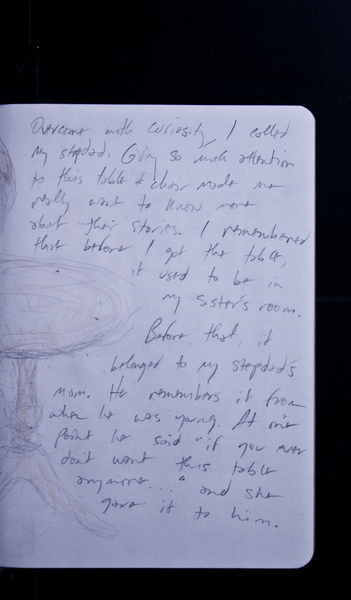 Overcome with curiosity, I called
my stepdad. Giving so much attention
to this table & chair made me
really want to know more
about their stories. I remembered
that before I got the table,
it used to be in
my sister's room.
Before that, it
belonged to my stepdad's
mom. He remembers it from
when he was young. At one
point he said "if you ever
don't want this table
anymore..." and she
gave it to him.